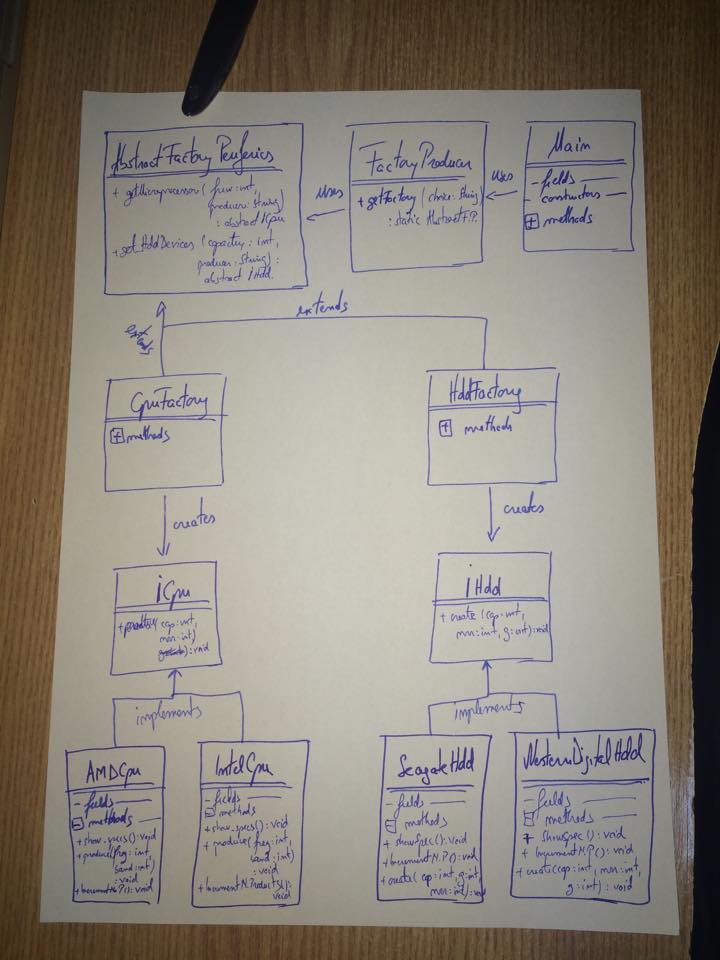 AbstractFactoryPeriferics
+ getMicroprocessor( frew: int,
producer: String)
: abstract ICpu
+ get HddDevices (capacity: int,
producer: String):
abstract iHdd.
uses
FactoryProducer
+ getFactory (choice: String)
: static AbstractF.P.
uses
Main
- fields
- constructors
+ methods
extends
extends
CpuFactory
+ methods
HddFactory
+ methods
creates
creates
iCpu
(cap: int,
mn: int)
: void
iHdd
+ create (cap: int,
mn: int, g: int): void
implements
implements
AMDCpu
- fields
- methods
+ show_specs(): void
+ produce(freq: int,
band: int)
: void
+ IncrementN.P(): void
IntelCpu
- fields
- methods
+ show_specs(): void
+ produce (freq: int,
band: int)
: void
+ IncrementN.Products():
void
SeagateHdd
- fields
- methods
+ showSpec(): void
+ IncrementN.P(): void
+ create( cap: int, g: int,
mn: int): void
WesternDigitalHdd
- fields
- methods
+ showspec(): void
+ IncrementN.P(): void
+ create(cap: int, mn: int,
g: int): void